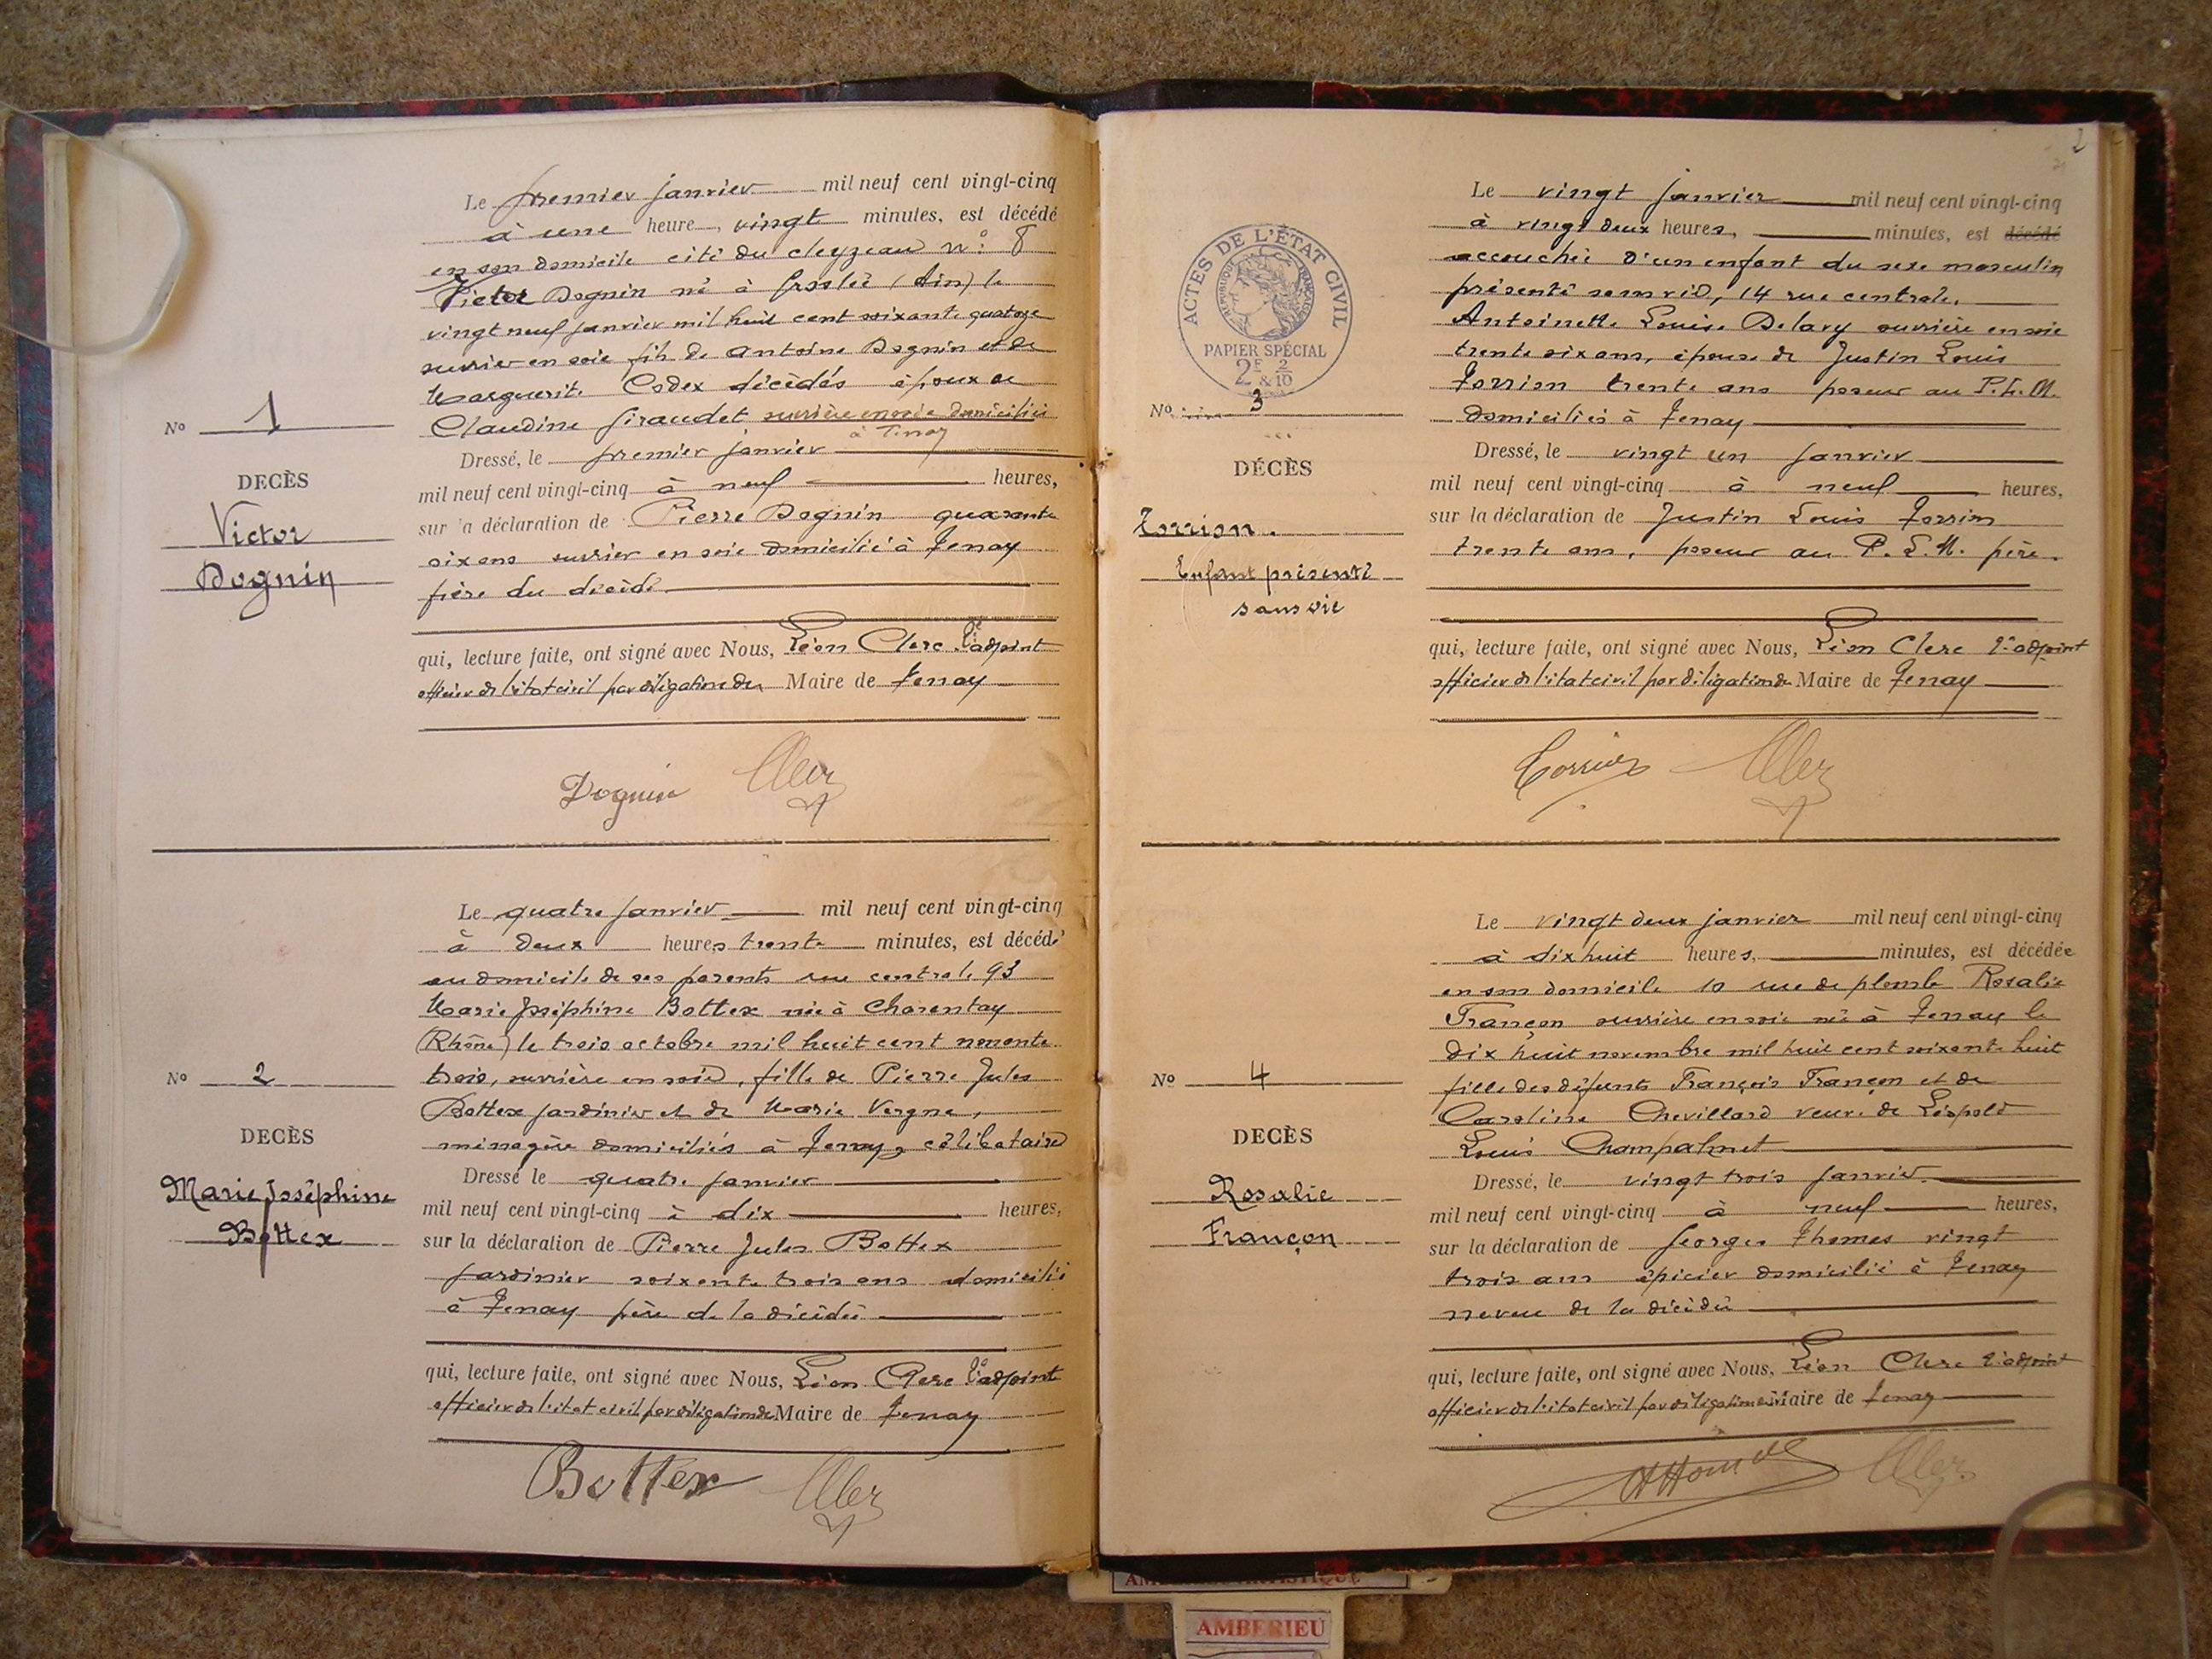 Le premier janvier mil neuf cent vingt-cinq
à une heure, vingt minutes, est décédé
en son domicile cité du cleyzeau n° 8
Victor Dognin né à Groslée (Ain) le
vingt neuf janvier mil huit cent soixante quatorze
ouvrier en soie fils de Antoine Dognin et de
Marguerite Codex décédés époux de
Claudine Giraudet ouvrière en soie domiciliés
à Tenay
No 1
Dressé, le premier janvier
DECÈS
mil neuf cent vingt-cinq à neuf heures,
Victor
Dognin
sur la déclaration de Pierre Dognin quarante
six ans ouvrier en soie domicilié à Tenay
frère du décédé
qui, lecture faite, ont signé avec Nous, Léon Clerc 2e adjoint
officier de l'état civil par délégation du Maire de Tenay
Dognin Clerc
Le quatre janvier mil neuf cent vingt-cinq
à deux heures trente minutes, est décédé
au domicile de ses parents rue centrale 93
Marie Joséphine Bottex née à Charentay
(Rhône) le trois octobre mil huit cent nonante
No 2
trois, ouvrière en soie, fille de Pierre Jules
Bottex jardinier et de Marie Vergne,
DECÈS
ménagère domiciliés à Tenay, célibataire
Dressé le quatre janvier
Marie Joséphine
Bottex
mil neuf cent vingt-cinq à dix heures,
sur la déclaration de Pierre Jules Bottex
jardinier soixante trois ans domicilié
à Tenay père de la décédée
qui, lecture faite, ont signé avec Nous, Léon Clerc 2e adjoint
officier de l'état civil par délégation du Maire de Tenay
Bottex Clerc
2
ACTES DE L'ÉTAT CIVIL
RÉPUBLIQUE FRANÇAISE
PAPIER SPÉCIAL
2F & 2/10
Le vingt janvier mil neuf cent vingt-cinq
à vingt deux heures, minutes, est décédé
accouchée d'un enfant du sexe masculin
présenté sans vie, 14 rue centrale,
Antoinette Louise Delavy ouvrière en soie
trente six ans, épouse de Justin Louis
Torrion trente ans poseur au P.L.M.
No 3
domiciliés à Tenay
Dressé, le vingt un janvier
DÉCÈS
mil neuf cent vingt-cinq à neuf heures,
Torrion.
Enfant présenté
sans vie
sur la déclaration de Justin Louis Torrion
trente ans, poseur au P.L.M. père.
qui, lecture faite, ont signé avec Nous, Léon Clerc 2e adjoint
officier de l'état civil par délégation du Maire de Tenay
Torrion Clerc
Le vingt deux janvier mil neuf cent vingt-cinq
à dix huit heures, minutes, est décédée
en son domicile 10 rue de plomb Rosalie
Françon ouvrière en soie née à Tenay le
dix huit novembre mil huit cent soixante huit
No 4
fille des défunts François Françon et de
Caroline Chevillard veuve de Léopold
DECÈS
Louis Champalmet
Dressé, le vingt trois janvier
Rosalie
Françon
mil neuf cent vingt-cinq à neuf heures,
sur la déclaration de Georges Thomas vingt
trois ans épicier domicilié à Tenay
neveu de la décédée
qui, lecture faite, ont signé avec Nous, Léon Clerc 2e adjoint
officier de l'état civil par délégation du Maire de Tenay
Clerc
AMBERIEU